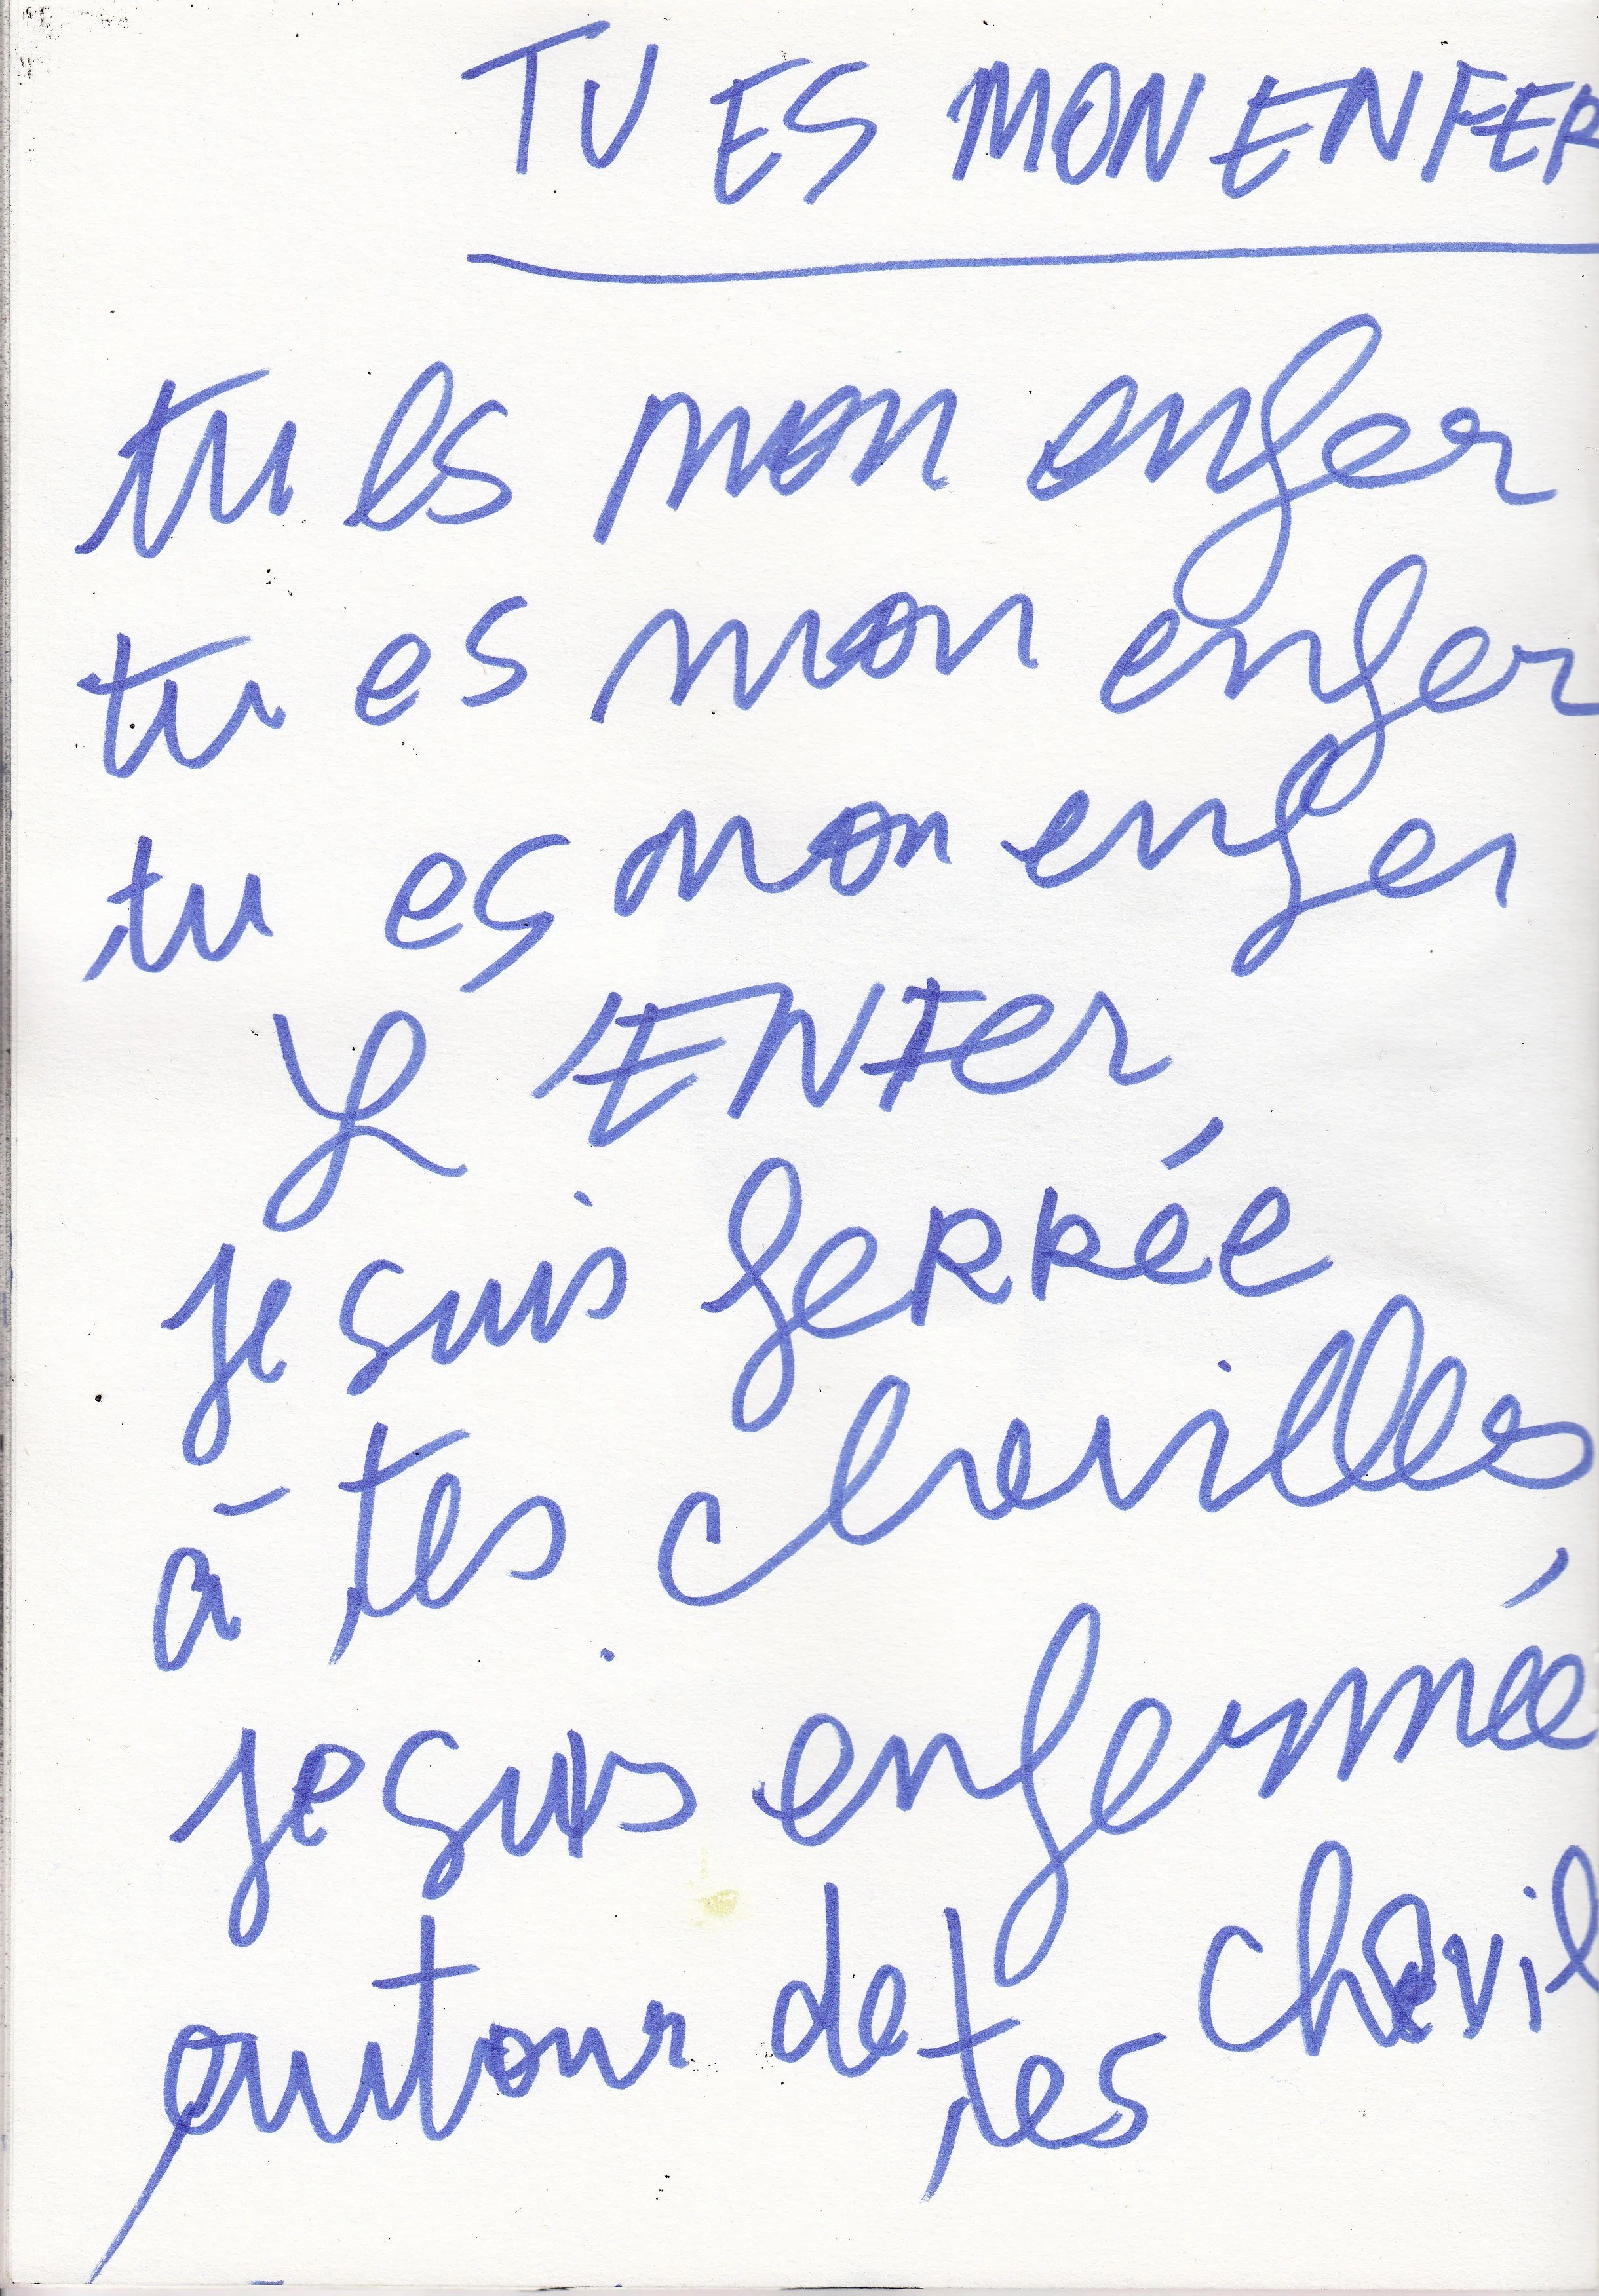 TU ES MON ENFER
tu es mon enfer
tu es mon enfer
tu es mon enfer
L'ENFer
je suis feRRée
à tes chevilles
je suis enfermée
autour de tes chevil